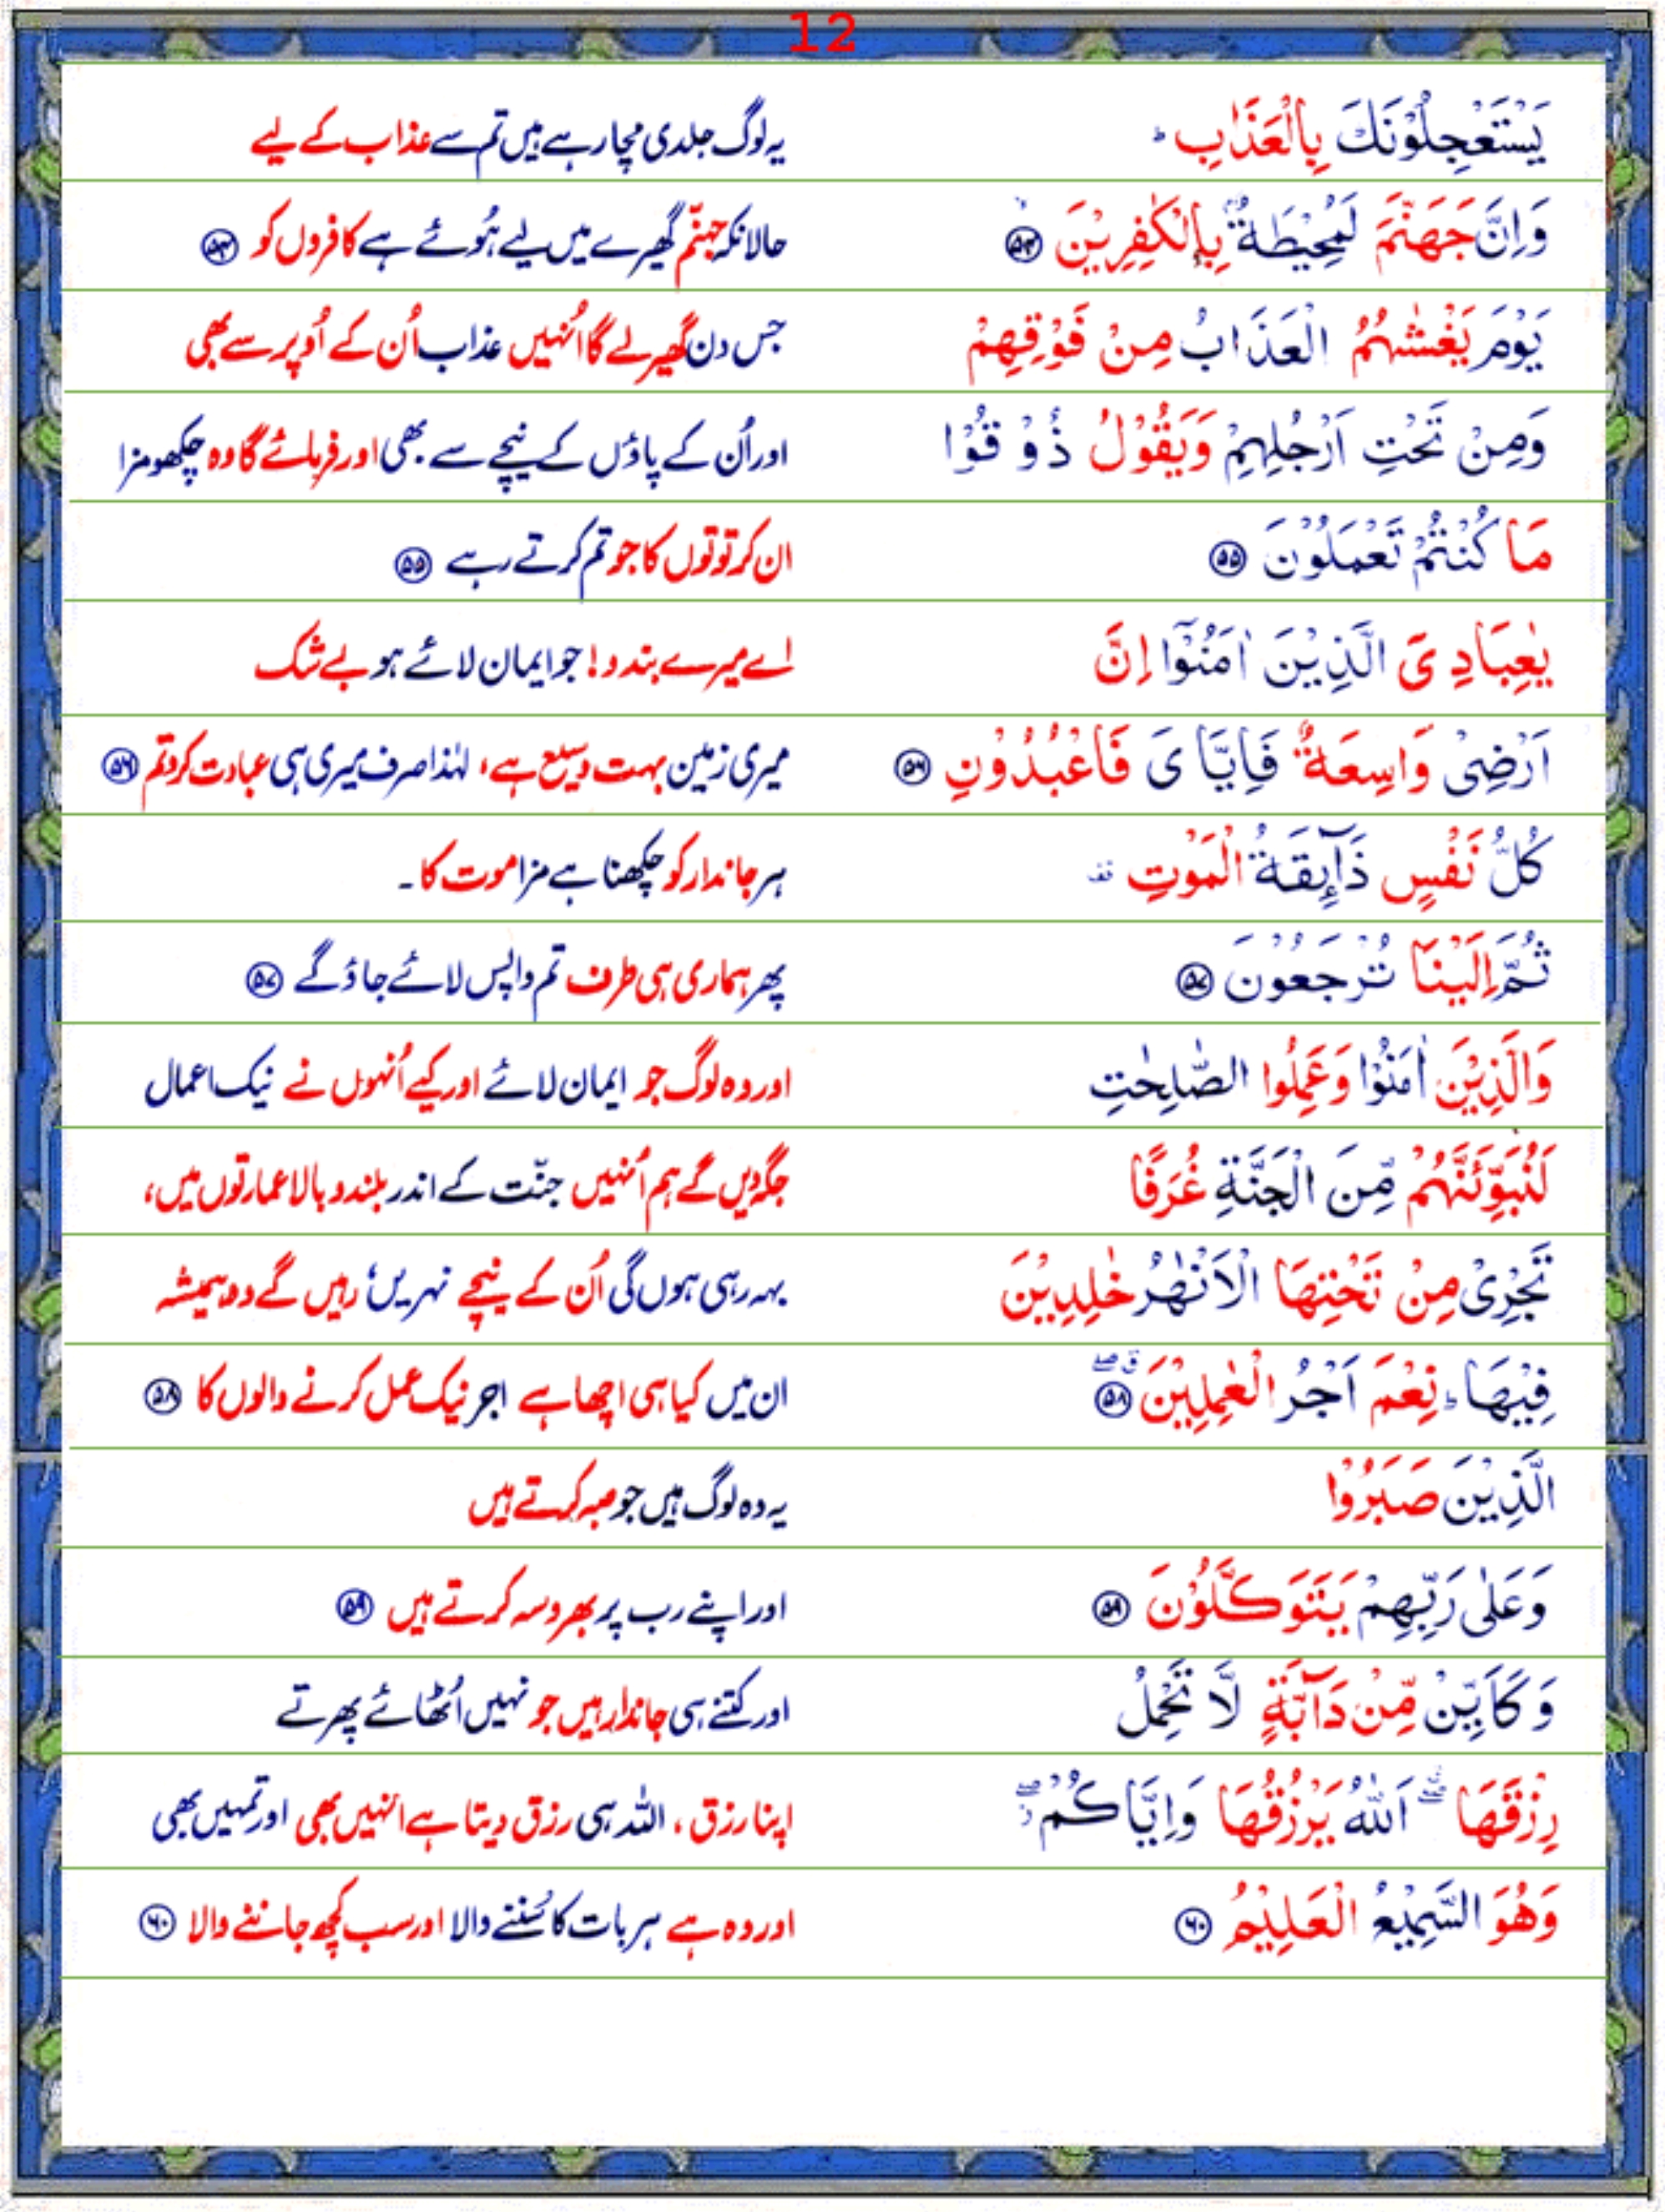 12
يَسْتَعْجِلُوْنَكَ بِالْعَذَابِ ؕ یہ لوگ جلدی مچارہے ہیں تم سے عذاب کے لیے
وَاِنَّ جَهَنَّمَ لَمُحِيْطَةٌۢ بِالْكٰفِرِيْنَ ۙ ﴿۵۴﴾ حالانکہ جہنّم گھیرے میں لیے ہُوئے ہے کافروں کو ﴿۵۴﴾
يَوْمَ يَغْشٰىهُمُ الْعَذَابُ مِنْ فَوْقِهِمْ جس دن گھیر لے گا اُنہیں عذاب اُن کے اُوپر سے بھی
وَمِنْ تَحْتِ اَرْجُلِهِمْ وَيَقُوْلُ ذُوْقُوْا اور اُن کے پاؤں کے نیچے سے بھی اور فرمائے گا وہ چکھو مزا
مَا كُنْتُمْ تَعْمَلُوْنَ ﴿۵۵﴾ ان کرتوتوں کا جو تم کرتے رہے ﴿۵۵﴾
يٰعِبَادِىَ الَّذِيْنَ اٰمَنُوْۤا اِنَّ اے میرے بندو! جو ایمان لائے ہو بے شک
اَرْضِىْ وَاسِعَةٌ فَاِيَّاىَ فَاعْبُدُوْنِ ﴿۵۶﴾ میری زمین بہت وسیع ہے، لہٰذا صرف میری ہی عبادت کرو تم ﴿۵۶﴾
كُلُّ نَفْسٍ ذَآٮِٕقَةُ الْمَوْتِ ہر جاندار کو چکھنا ہے مزا موت کا۔
ثُمَّ اِلَيْنَا تُرْجَعُوْنَ ﴿۵۷﴾ پھر ہماری ہی طرف تم واپس لائے جاؤ گے ﴿۵۷﴾
وَالَّذِيْنَ اٰمَنُوْا وَعَمِلُوا الصّٰلِحٰتِ اور وہ لوگ جو ایمان لائے اور کیے اُنہوں نے نیک اعمال
لَنُبَوِّئَنَّهُمْ مِّنَ الْجَنَّةِ غُرَفًا جگہ دیں گے ہم اُنہیں جنّت کے اندر بلند و بالا عمارتوں میں،
تَجْرِىْ مِنْ تَحْتِهَا الْاَنْهٰرُ خٰلِدِيْنَ بہہ رہی ہوں گی اُن کے نیچے نہریں، رہیں گے وہ ہمیشہ
فِيْهَا ؕ نِعْمَ اَجْرُ الْعٰمِلِيْنَ ۖ ﴿۵۸﴾ ان میں کیا ہی اچھا ہے اجر نیک عمل کرنے والوں کا ﴿۵۸﴾
الَّذِيْنَ صَبَرُوْا یہ وہ لوگ ہیں جو صبر کرتے ہیں
وَعَلٰى رَبِّهِمْ يَتَوَكَّلُوْنَ ﴿۵۹﴾ اور اپنے رب پر بھروسہ کرتے ہیں ﴿۵۹﴾
وَكَاَيِّنْ مِّنْ دَآبَّةٍ لَّا تَحْمِلُ اور کتنے ہی جاندار ہیں جو نہیں اُٹھائے پھرتے
رِزْقَهَا ۖ اَللّٰهُ يَرْزُقُهَا وَاِيَّاكُمْ ۖ اپنا رزق، اللہ ہی رزق دیتا ہے انہیں بھی اور تمہیں بھی
وَهُوَ السَّمِيْعُ الْعَلِيْمُ ﴿۶۰﴾ اور وہ ہے ہر بات کا سُننے والا اور سب کچھ جاننے والا ﴿۶۰﴾